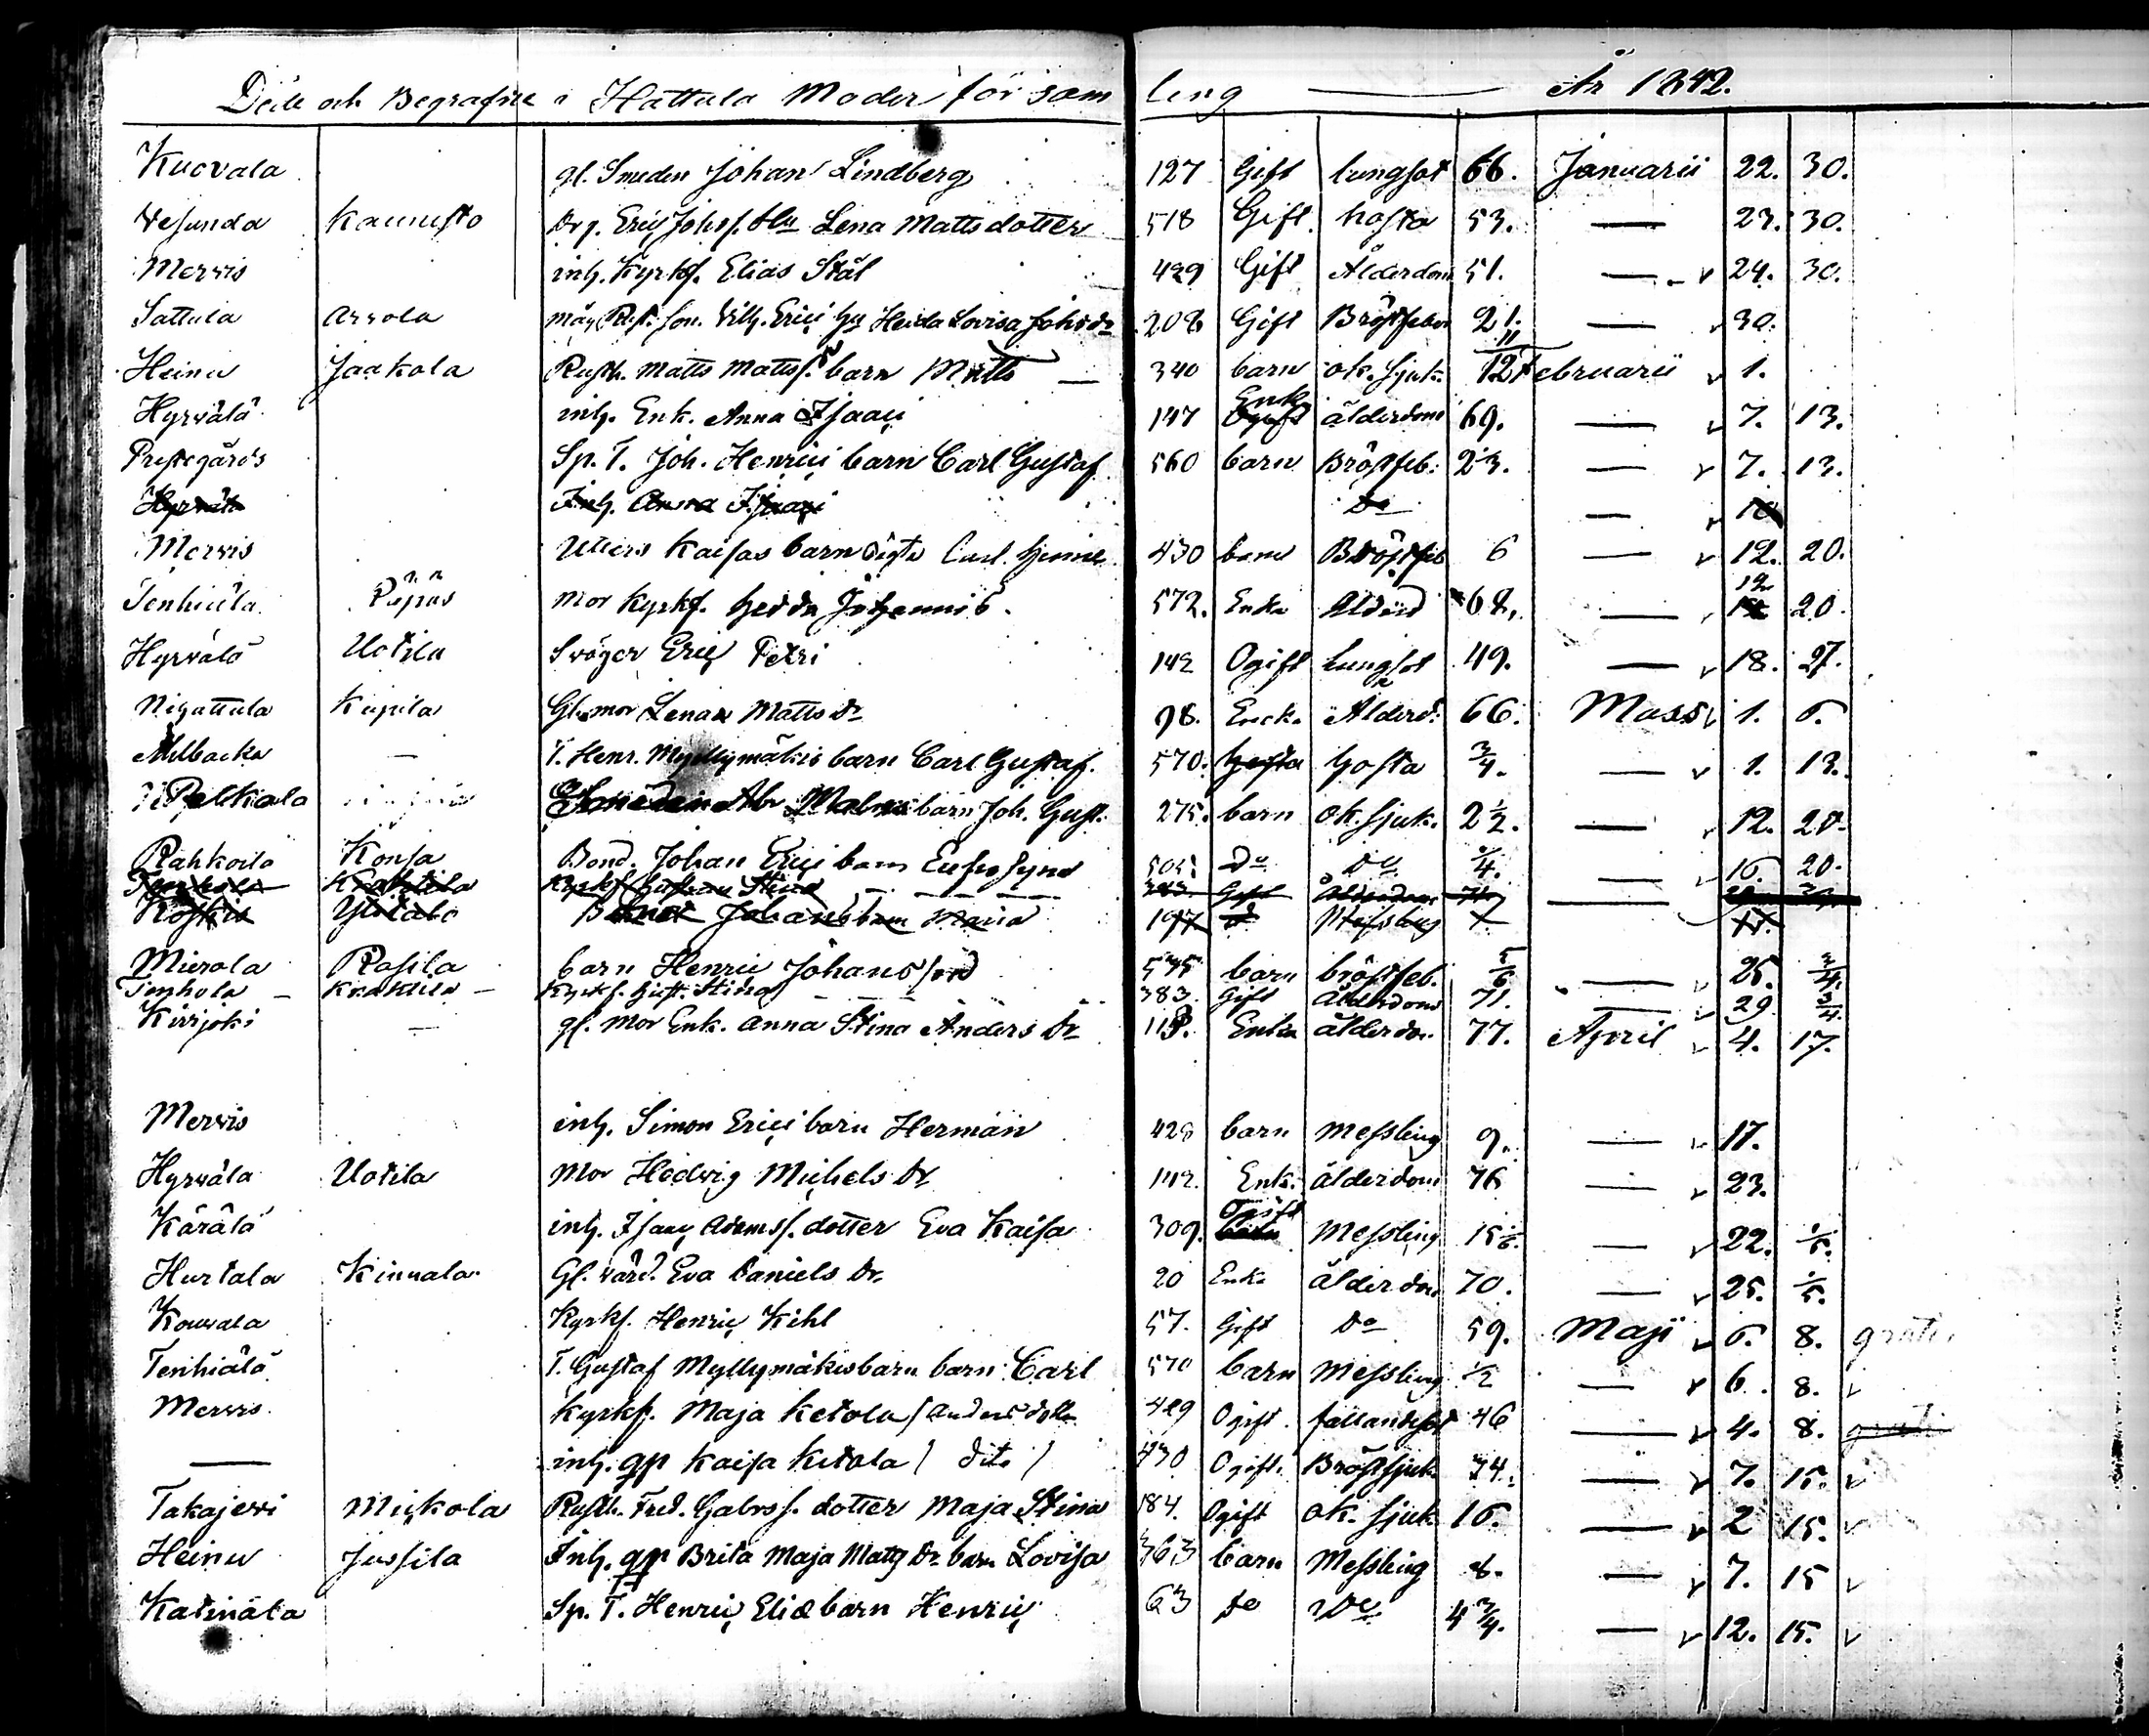 Döde och Begrafne i Hattula Moder församling År 1842.
Kuovala gl. Smeden Johan Lindberg 127 Gift lungsot 66. Januarii 22. 30.
Vesunda Kaunisto Eric Johsf. Hu Lena Mattsdotter 518 Gift hosta 53. — 23. 30.
Merwis inh. Kyrkf. Elias Stål 429 Gift Ålderdom 51. — 24. 30.
Sattula Arvola måg Erici Hu Heida Lovisa Johsdr 208 Gift Bröstfeber 21. — 30.
Heinu Jaakola Rusth. Matts Mattsf. barn Matts — 340 barn ok. sjuk. 11/12 Februarii 1.
Hyrwälä inh. Enk. Anna Isaaci 147 Enk. ålderdom 69. — 7. 13.
Prestegårds Sp. T. Joh. Henrici barn Carl Gustaf 560 barn Bröstfeb. 23. — 7. 13.
Hyrwälä Inh. Anna Isaaci Do — 10
Merwis Kaisas barn oägta Carl 430 barn Bröstfeb 6 — 12. 20.
Tenhiälä Mor Kyrkf. Hedda Johannis. 572. Enka Ålderd 68. — 12. 20.
Hyrwälä Uotila Svåger Eric Petri 142 Ogift lungsot 49. — 18. 27.
Nigattula Gl. mor Lena Matts Dr 98. Enck. Ålderd. 66. Mars 1. 6.
— T. Henr. Myllymäkis barn Carl Gustaf. 570. hosta 3/4. — 1. 13.
Pelkola Smeden Ab. Malms barn Joh. Gust. 275. barn ok. sjuk. 2 1/2. — 12. 20.
Rahkoila Konsa Bond. Johan Erici barn Eufrosyna Do Do — 16. 20.
Tenhola Kraktila Kyrkf. Gustavs Stina Gift Ålderdom 71
Johans barn Maria 197
Mierola Rasila barn Henric Johans 535 barn bröstfeb. 5/6 — 25. 3/4.
Tenhola — Kraktila — Kyrkf. Gust. Stina 383. Gift Ålderdom 71. — 29 3/4.
Kirrjoki — gl. Mor Enk. Anna Stina Anders Dr Enka ålderdo. 77. April 4. 17.
Merwis inh. Simon Erici barn Herman 428 barn Messling 9. — 17.
Hyrwälä Uotila Mor Hedvig Michels Dr 142. Enk. ålderdom 76 — 23.
Kärälä inh. Isaac Adamsf. dotter Eva Kaisa 309. Ogift Messling — 22. 1/5.
Hurtala Kinnala Gl. värd. Eva Daniels Dr. 20 Enk. ålderdom 70. — 25. 1/5.
Kouvala Kyrkf. Henric Kihl 57. Gift Do 59. Maji 6. 8. gratis
Tenhiälä T. Gustaf Myllymäkis barn barn Carl 570 barn Messling 1/2 — 6. 8.
Merwis. Kyrkf. Maja Ketola / Anders dotter 429 Ogift. fallandesot 46 — 4. 8.
— inh. qp Kaisa Ketola / dito / 430 Ogift. Bröstsjuk. 74. — 7. 15.
Takajerwi Mickola Rusth. Fred. Gabrsf. dotter Maja Stina 184. Ogift ok. sjuk. 16. — 2 15.
Heinu Jussila Inh. qp Brita Maja Matts Dr barn Lovisa 363 barn Messling 8. — 7. 15
Katinala Sp. T. Henric Eliæ barn Henric 63 Do Do 4 3/4. — 12. 15.